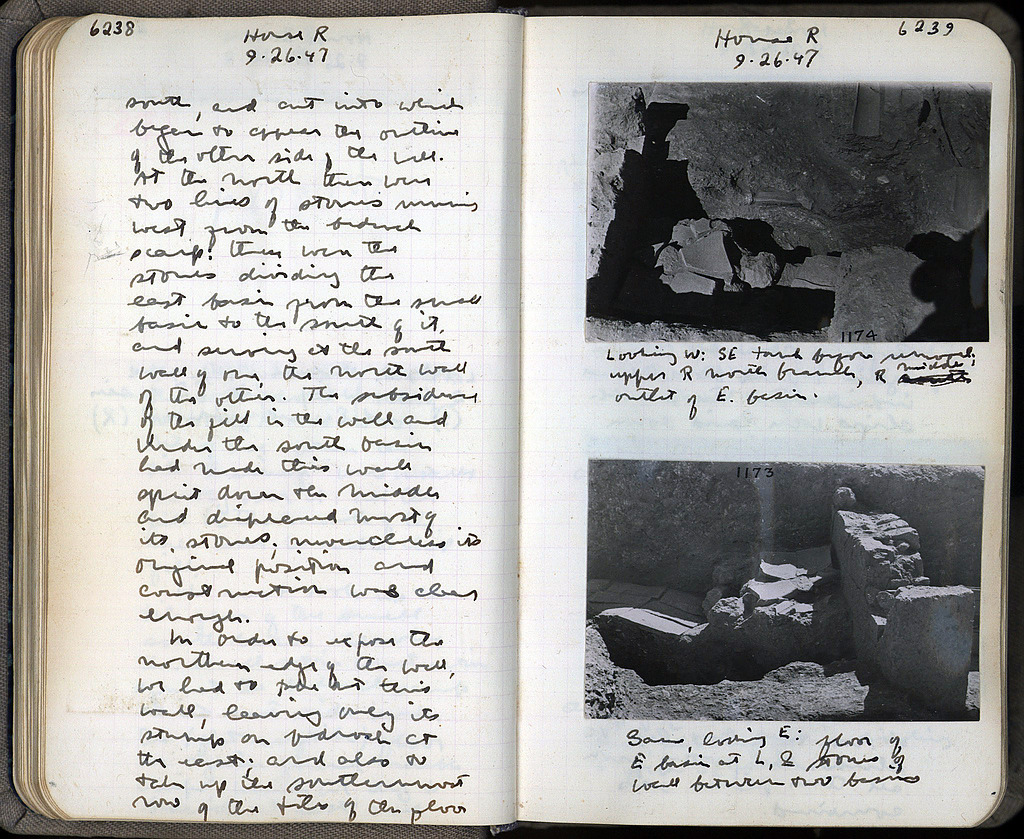 6238
House R
9·26·47
south, and cut into which
began to appear the outline
of the other side of the well.
At the north there were
two lines of stones running
west from the bedrock
scarp: these were the
stones dividing the
east basin from the small
basin to the south of it,
and serving as the south
wall of one, the north wall
of the other. The subsidence
of the fill in the well and
under the south basin
had made this wall
split down the middle
and displaced most of
its stones; nevertheless its
original position and
construction was clear
enough.
In order to expose the
northern edge of the well,
we had to take out this
wall, leaving only its
stumps on bedrock at
the east; and also to
take up the southernmost
row of the tiles of the floor
6239
House R
9·26·47
1174
Looking W: SE tank before removal;
upper R north branch, R middle
outlet of E. basin.
1173
Same, looking E: floor of
E basin at L, stones of
wall between two basins